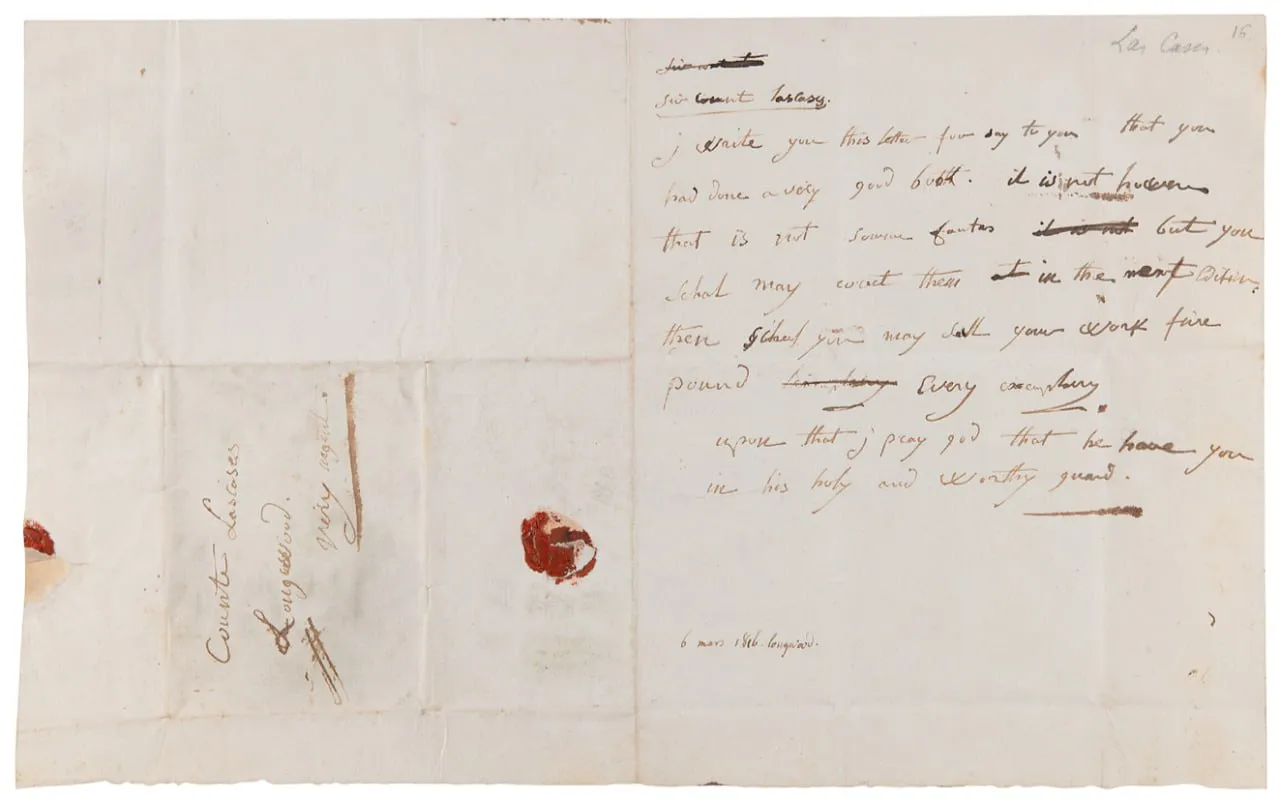 Las Cases. 15
sir count lascases.
j write you this letter for say to you that you
had done a very good book. it is not
that is not somme fautes it is not but you
schal may corect them in the next edition.
then schal you may sell your work five
pound every exemplary
upon that j pray god that he have you
in his holy and worthy guard.
6 mars 1816. longwood.
Counte Lascases
Longwood.
very urgent.